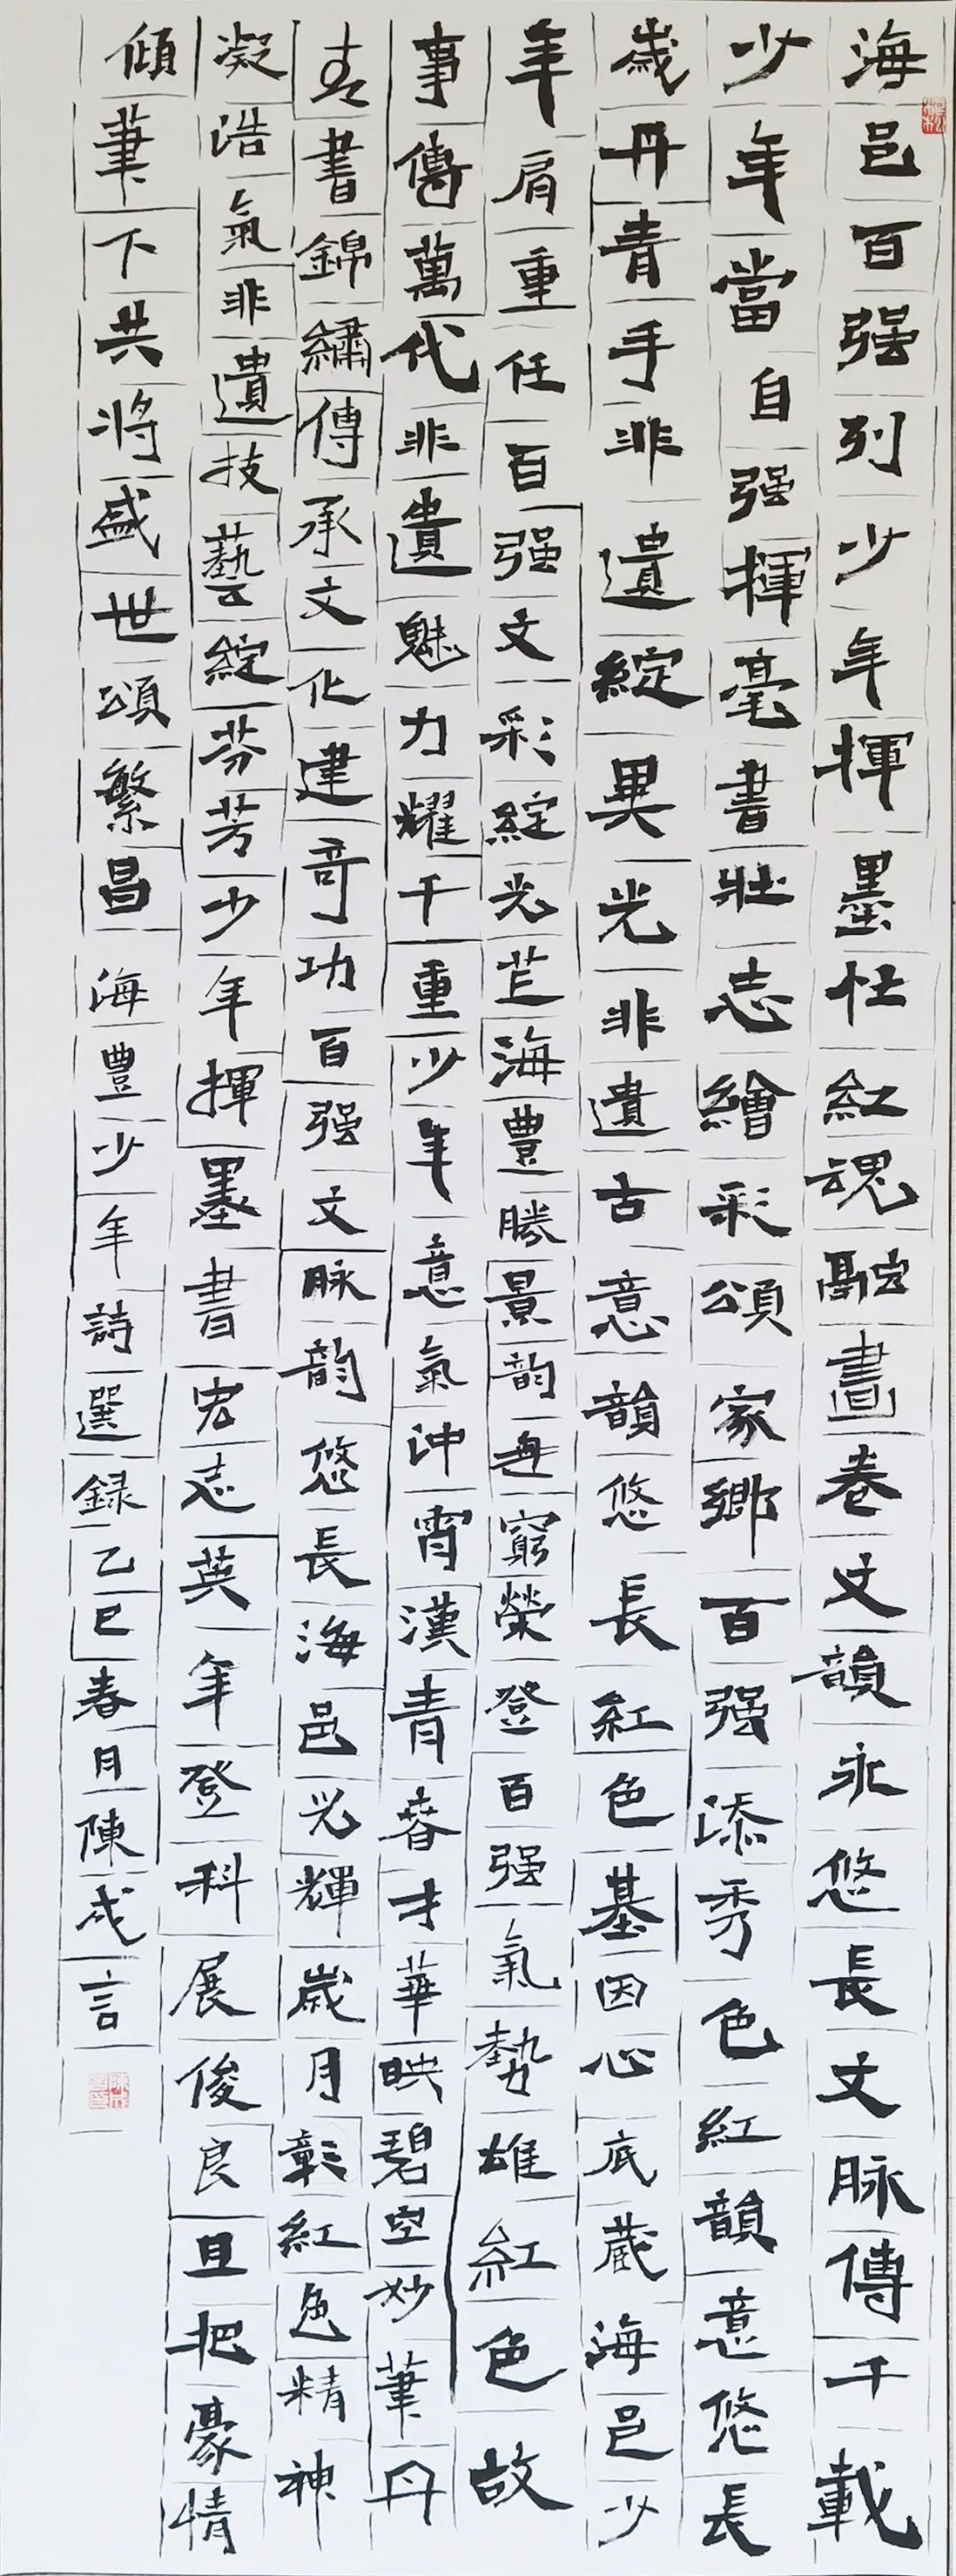 海邑百强列少年揮墨忙紅魂融畫卷文韻永悠長文脉傳千載
少年當自强揮毫書壯志繪彩頌家鄉百强添秀色紅韻意悠長
歲丹青手非遺綻異光非遺古意韻悠長紅色基因心底藏海邑少
年肩重任百强文彩綻光芒海豐勝景韵無窮榮登百强氣勢雄紅色故
事傳萬代非遺魅力耀千重少年意氣沖霄漢青春才華映碧空妙筆丹
青書錦繡傳承文化建奇功百强文脉韵悠長海邑光輝歲月彰紅色精神
凝浩氣非遺技藝綻芬芳少年揮墨書宏志英年登科展俊良且把豪情
傾筆下共將盛世頌繁昌 海豐少年詩選録乙巳春月陳成言